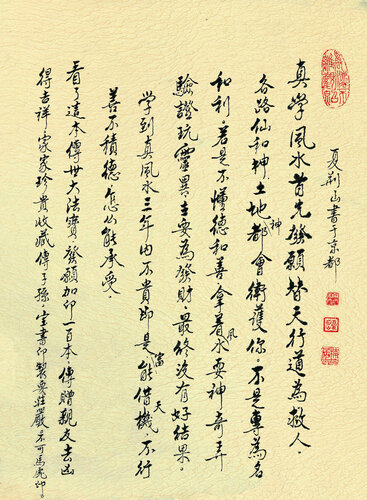 夏荆山書于京都
真學風水首先發願替天行道為救人.
各路仙和神.土地神都會衛護你.不是專為名
和利.若是不懂德和善拿着風水耍神奇弄
驗證玩靈異.主要為發財.最終沒有好結果。
學到真風水三年内不貴即是富能借天機.不行
善不積德怎么能承受。
看了這本傳世大法寶發願加印一百本傳贈親友去凶
得吉祥.家家珍貴收藏傳子孫.宝書印製要莊嚴不可馬虎印。